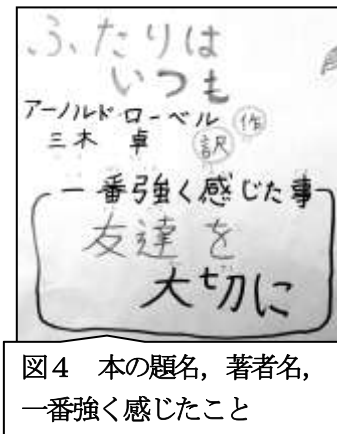 ふたりは
いつも
アーノルド ローベル 作
三木 卓 訳
一番強く感じた事
友達を
大切に
図4 本の題名,著者名,
一番強く感じたこと